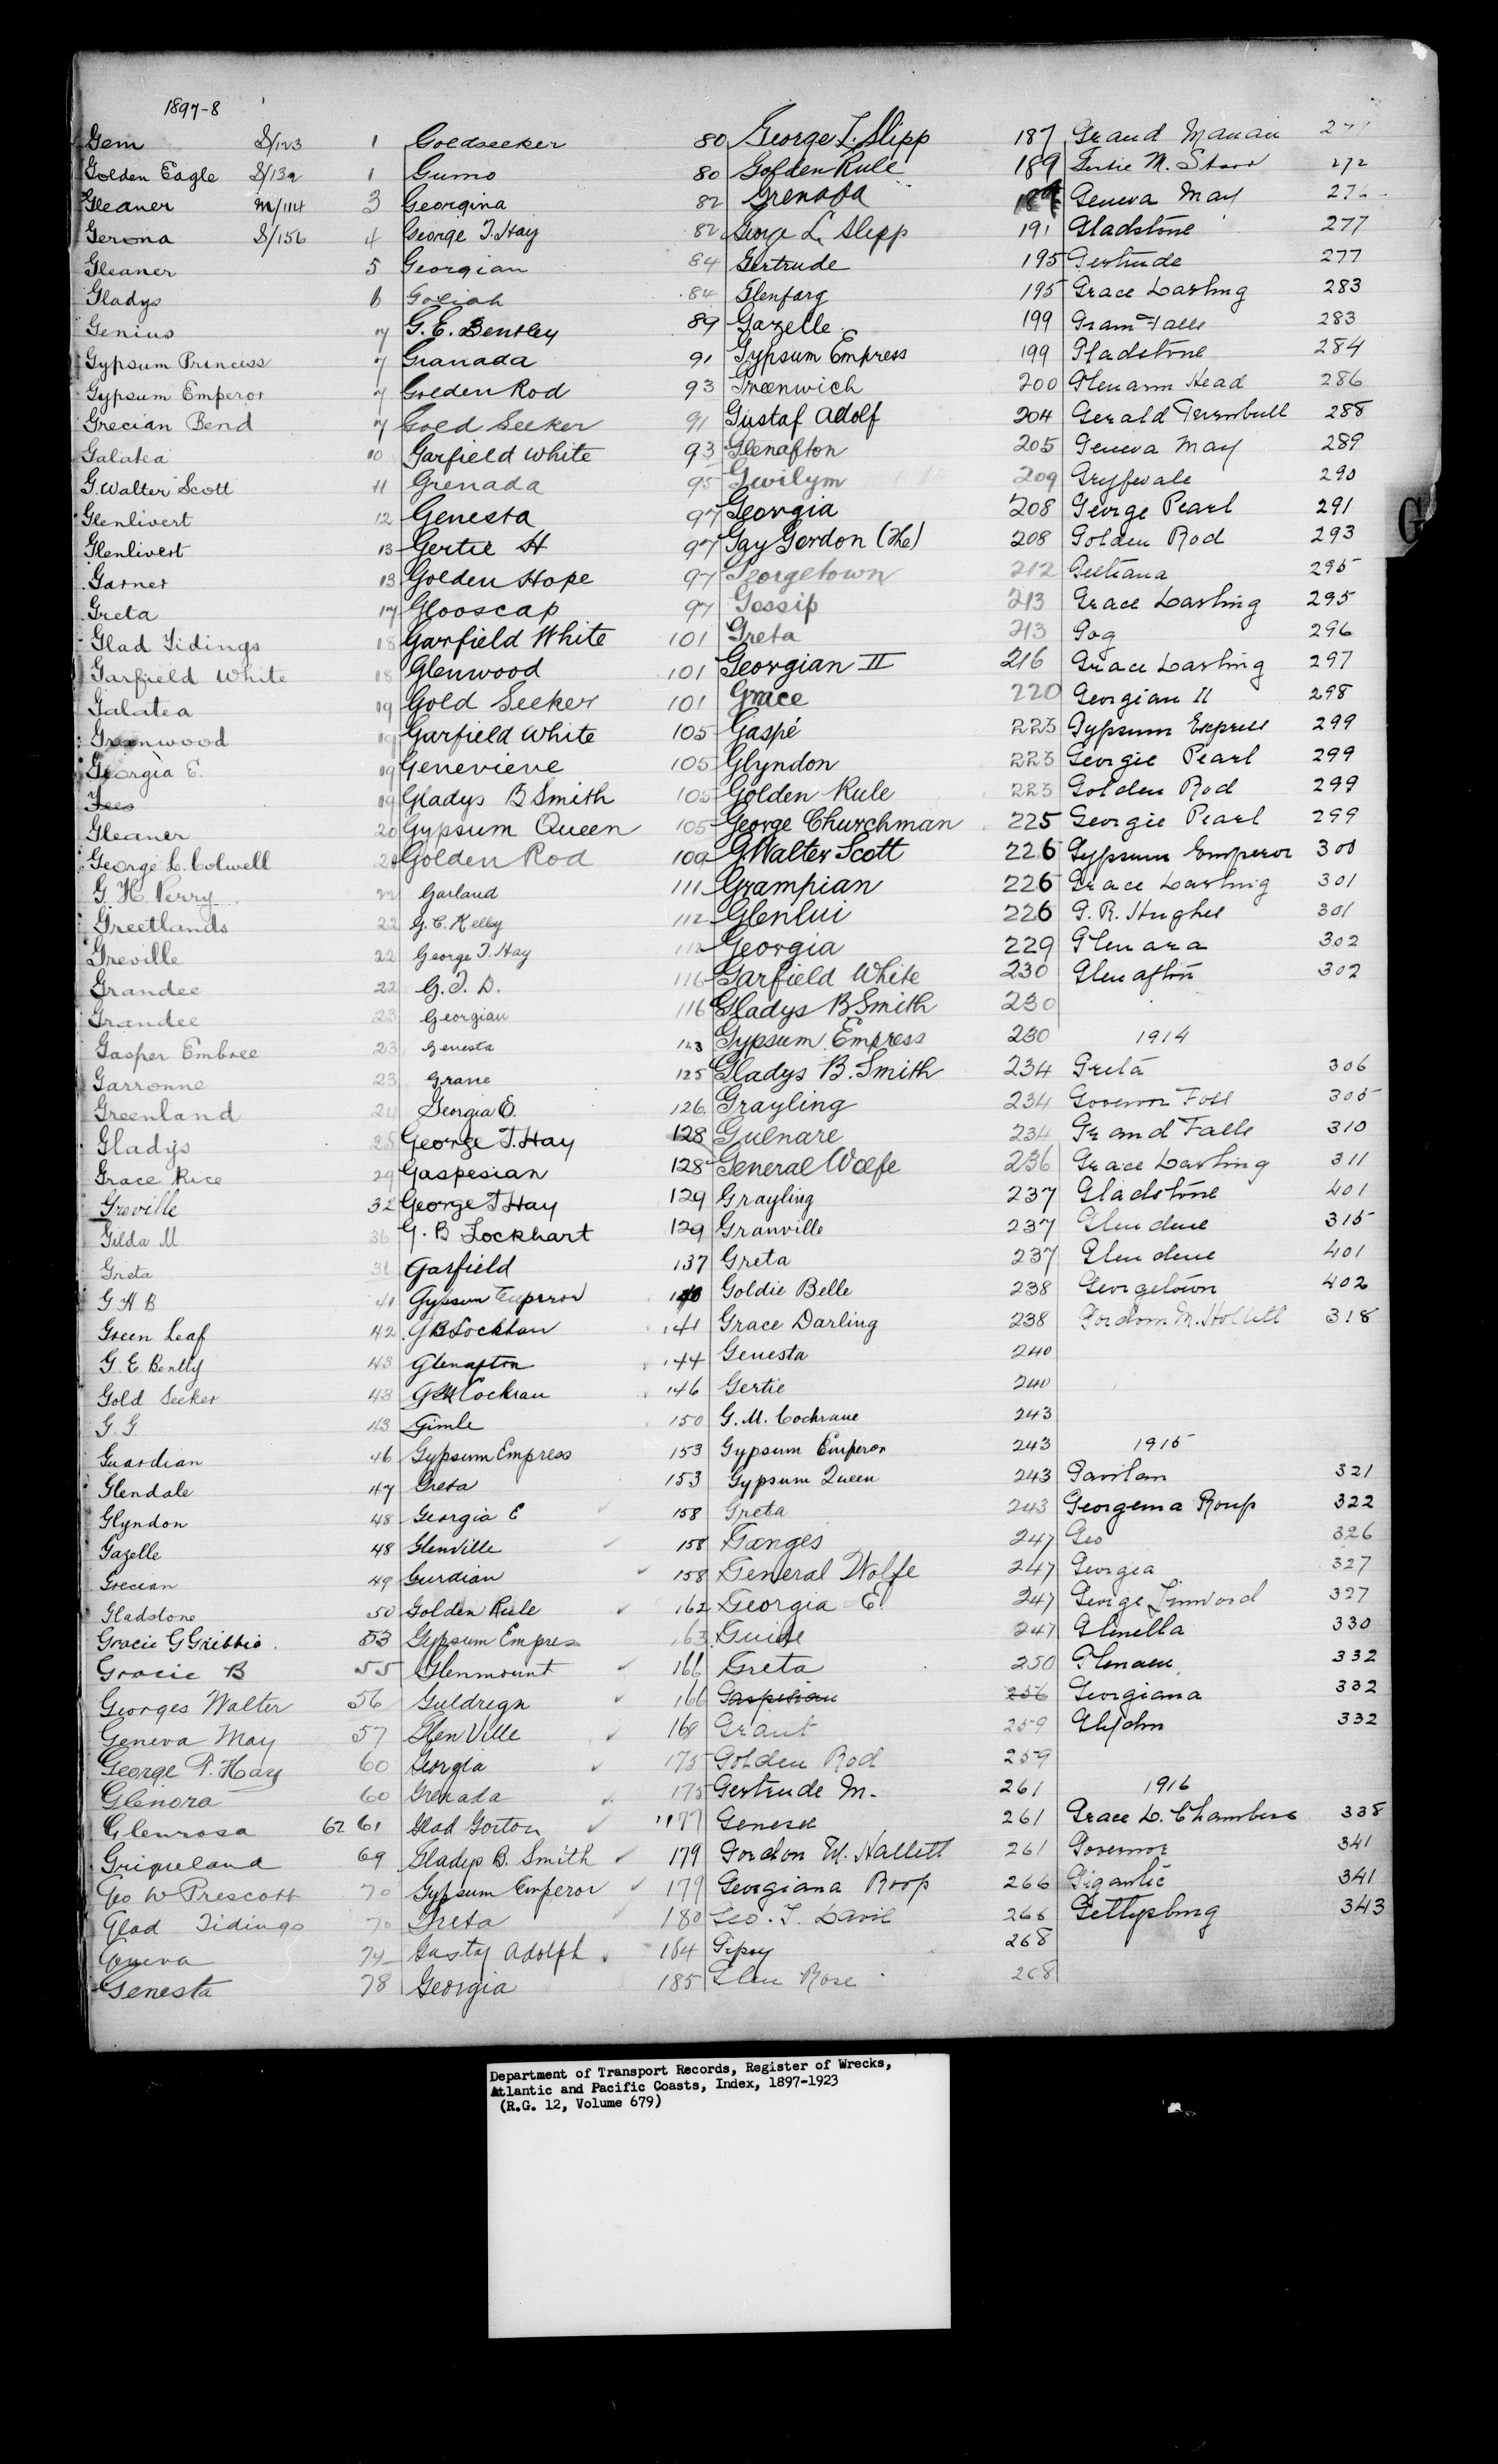 1897-8
Gem S/123 1
Golden Eagle S/132 1
Gleaner M/114 3
Gerona S/156 4
Gleaner 5
Gladys 6
Genius 7
Gypsum Princess 7
Gypsum Emperor 7
Grecian Bend 7
Galatea 10
G. Walter Scott 11
Glenlivert 12
Glenlivert 13
Garnet 13
Greta 17
Glad Tidings 18
Garfield White 18
Galatea 19
Greenwood 19
Georgia E. 19
19
Gleaner 20
George L. Colwell 20
G. H. Perry 22
Greetlands 22
Greville 22
Grandee 22
Grandee 23
Gasper Embree 23
Garronne 23
Greenland 24
Gladys 25
Grace Rice 29
Greville 32
Gilda M 36
Greta 31
G H B 41
Green Leaf 42
G. E. Bently 43
Gold Seeker 43
G. G 43
Guardian 46
Glendale 47
Glyndon 48
Gazelle 48
Grecian 49
Gladstone 50
Gracie G Gribbie 53
Gracie B 55
Georges Walter 56
Geneva May 57
George T. Hay 60
Glenora 60
Glenrosa 62 61
Griqueland 69
Geo W Prescott 70
Glad Tidings 70
Geneva 74
Genesta 78
Goldseeker 80
Gumo 80
Georgina 82
George T. Hay 82
Georgian 84
Goliah 84
G. E. Bentley 89
Granada 91
Golden Rod 93
Gold Seeker 91
Garfield White 93
Grenada 95
Genesta 97
Gertie H 97
Golden Hope 97
Glooscap 97
Garfield White 101
Glenwood 101
Gold Seeker 101
Garfield White 105
Genevieve 105
Gladys B Smith 105
Gypsum Queen 105
Golden Rod 109
Garland 111
G. C. Kelley 112
George T. Hay 112
G. J. D. 116
Georgian 116
Genesta 123
Grane 125
Georgia E. 126
George T. Hay 128
Gaspesian 128
George T Hay 129
G. B Lockhart 129
Garfield 137
Gypsum Emperor 140
G B Lockhart 141
Glenafton 144
G M Cochran 146
Gimle 150
Gypsum Empress 153
Greta 153
Georgia E 158
Glenville 158
Gurdian 158
Golden Rule 162
Gypsum Empres 163
Glenmount 166
Guldregn 166
Glen Ville 168
Georgia 175
Grenada 175
Glad Gorton 177
Gladys B. Smith 179
Gypsum Emperor 179
Greta 180
Gustaf Adolph 184
Georgia 185
George L. Slipp 187
Golden Rule 189
Grenada 189
George L. Slipp 191
Gertrude 195
Glenfarg 195
Gazelle 199
Gypsum Empress 199
Greenwich 200
Gustaf Adolf 204
Glenafton 205
Gwilym 209
Georgia 208
Gay Gordon (The) 208
Georgetown 212
Gossip 213
Greta 213
Georgian II 216
Grace 220
Gaspé 223
Glyndon 223
Golden Rule 223
George Churchman 225
G. Walter Scott 226
Grampian 226
Glenlui 226
Georgia 229
Garfield White 230
Gladys B Smith 230
Gypsum Empress 230
Gladys B. Smith 234
Grayling 234
Gulnare 234
General Wolfe 236
Grayling 237
Granville 237
Greta 237
Goldie Belle 238
Grace Darling 238
Genesta 240
Gertie 240
G. M. Cochrane 243
Gypsum Emperor 243
Gypsum Queen 243
Greta 243
Ganges 247
General Wolfe 247
Georgia E. 247
Guide 247
Greta 250
Gaspesian 256
Grant 259
Golden Rod 259
Gertrude M. 261
Genesee 261
Gordon M. Hallett 261
Georgiana Roop 266
Geo. T. Davie 266
Gipsy 268
Glen Rose 268
Grand Manan 271
Gertie M. Starr 272
Geneva May 276
Gladstone 277
Gertrude 277
Grace Darling 283
Grand Falls 283
Gladstone 284
Glenarm Head 286
Gerald Turnbull 288
Geneva May 289
Gryfevale 290
George Pearl 291
Golden Rod 293
295
Grace Darling 295
Gog 296
Grace Darling 297
Georgian II 298
Gypsum Express 299
Georgie Pearl 299
Golden Rod 299
Georgie Pearl 299
Gypsum Emperor 300
Grace Darling 301
G. R. Hughes 301
Glenara 302
Glenafton 302
1914
Greta 306
Governor Foss 305
Grand Falls 310
Grace Darling 311
Gladstone 401
Glendene 315
Glendene 401
Georgetown 402
Gordon M. Hollett 318
1915
321
Georgema Roup 322
Geo 326
Georgea 327
George Linwood 327
Glenella 330
332
Georgiana 332
332
1916
Grace D. Chambers 338
Governor 341
Gigantic 341
Gettysburg 343
G
Department of Transport Records, Register of Wrecks,
Atlantic and Pacific Coasts, Index, 1897-1923
(R.G. 12, Volume 679)